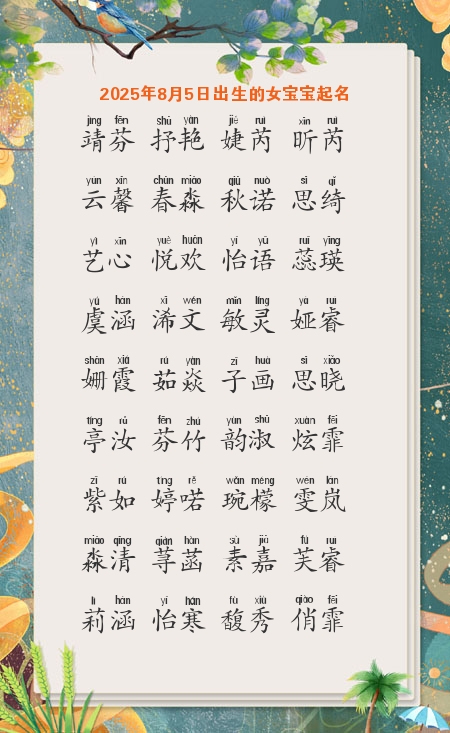 2025年8月5日出生的女宝宝起名
jìng fēn shū yàn jié ruì xīn ruì
靖芬 抒艳 婕芮 昕芮
yún xīn chūn miǎo qiū nuò sī qǐ
云馨 春淼 秋诺 思绮
yì xīn yuè huān yí yǔ ruǐ yīng
艺心 悦欢 怡语 蕊瑛
yú hán xī wén mǐn líng yà ruì
虞涵 浠文 敏灵 娅睿
shān xiá rú yàn zǐ huà sī xiǎo
姗霞 茹焱 子画 思晓
tíng rǔ fēn zhú yùn shū xuàn fēi
亭汝 芬竹 韵淑 炫霏
zǐ rú tíng rě wǎn méng wén lán
紫如 婷喏 琬檬 雯岚
miǎo qīng qián hàn sù jiā fú ruì
淼清 荨菡 素嘉 芙睿
lì hán yí hán fù xiù qiào fēi
莉涵 怡寒 馥秀 俏霏